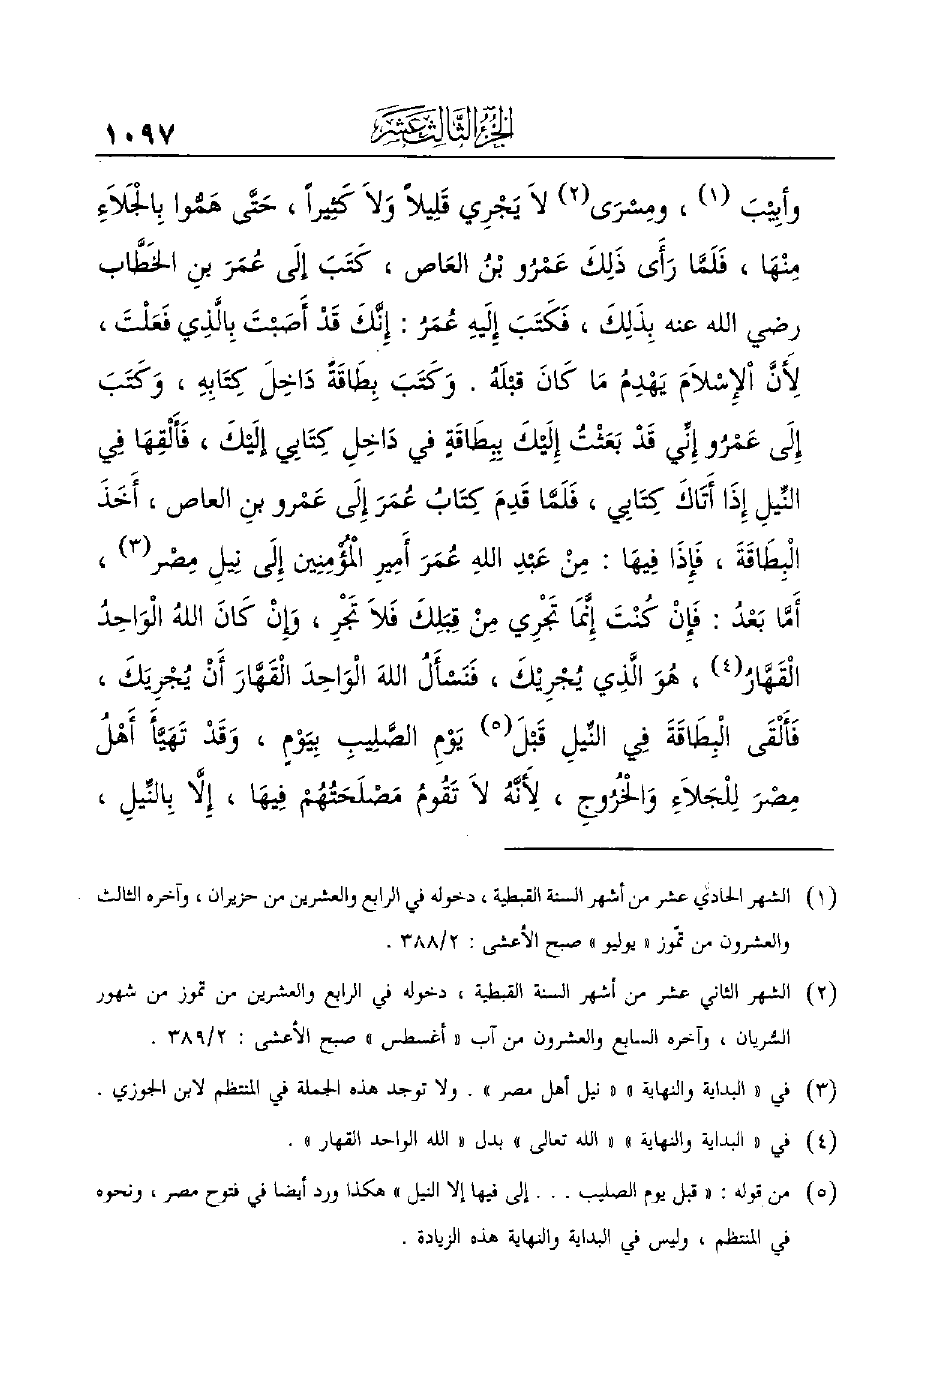 الجزء الثالث عشر ١٠٩٧
وأبِيْبَ (١) ، ومِسْرَى(٢) لاَ يَجْرِي قَلِيلاً وَلاَ كَثِيراً ، حَتَّى هَمُّوا بِالْجَلَاءِ
مِنْهَا ، فَلَمَّا رَأَى ذَلِكَ عَمْرُو بْنُ العَاص ، كَتَبَ إلَى عُمَرَ بنِ الخَطَّاب
رضي الله عنه بِذَلِكَ ، فَكَتَبَ إِلَيهِ عُمَرُ : إنَّكَ قَدْ أَصَبْتَ بِالَّذِي فَعَلْتَ ،
لِأَنَّ الإِسْلاَمَ يَهْدِمُ مَا كَانَ قبْلَهُ . وَكَتَبَ بِطَاقَةً دَاخِلَ كِتَابِهِ ، وَكَتَبَ
إلَى عَمْرُو إنِّي قَدْ بَعَثْتُ إِلَيْكَ بِبِطَاقَةٍ في دَاخِلِ كِتَابِي إلَيْكَ ، فَأَلْقِهَا فِي
النِّيلِ إذَا أَتَاكَ كِتَابِي ، فَلَمَّا قَدِمَ كِتَابُ عُمَرَ إلَى عَمْرو بنِ العاص ، أَخَذَ
الْبِطَاقَةَ ، فَإذَا فِيهَا : مِنْ عَبْدِ اللهِ عُمَرَ أَمِيرِ الْمُؤْمِنِين إلَى نِيلِ مِصْر(٣) ،
أَمَّا بَعْدُ : فَإنْ كُنْتَ إنَّمَا تَجْرِي مِنْ قِبَلِكَ فَلاَ تَجْرِ ، وَإنْ كَانَ اللهُ الْوَاحِدُ
الْقَهَّارُ(٤) ، هُوَ الَّذِي يُجْرِيْكَ ، فَنَسْأَلُ اللهَ الْوَاحِدَ الْقَهَّارَ أَنْ يُجْرِيَكَ ،
فَأَلْقَى الْبِطَاقَةَ فِي النِّيلِ قَبْلَ(٥) يَوْمِ الصَّلِيبِ بِيَوْمٍ ، وَقَدْ تَهَيَّأَ أَهْلُ
مِصْرَ لِلْجَلاَءِ وَالْخُرُوجِ ، لِأَنَّهُ لاَ تَقُومُ مَصْلَحَتُهُمْ فِيهَا ، إلَّا بِالنِّيلِ ،
(١) الشهر الحادي عشر من أشهر السنة القبطية ، دخوله في الرابع والعشرين من حزيران ، وآخره الثالث
والعشرون من تمّوز « يوليو » صبح الأعشى : ٣٨٨/٢ .
(٢) الشهر الثاني عشر من أشهر السنة القبطية ، دخوله في الرابع والعشرين من تموز من شهور
السُّريان ، وآخره السابع والعشرون من آب « أغسطس » صبح الأعشى : ٣٨٩/٢ .
(٣) في « البداية والنهاية » « نيل أهل مصر » . ولا توجد هذه الجملة في المنتظم لابن الجوزي .
(٤) في « البداية والنهاية » « الله تعالى » بدل « الله الواحد القهار » .
(٥) من قوله : « قبل يوم الصليب . . . إلى فيها إلا النيل » هكذا ورد أيضا في فتوح مصر ، ونحوه
في المنتظم ، وليس في البداية والنهاية هذه الزيادة .